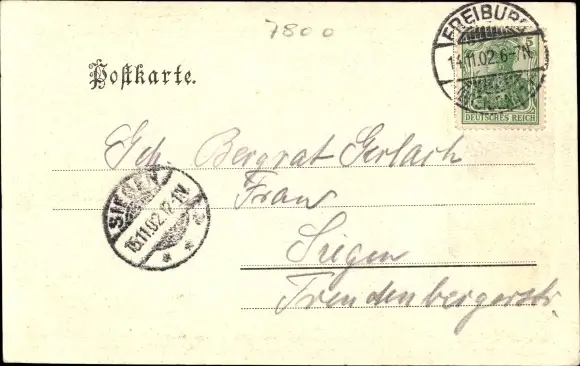 7800
FREIBURG
14.11.02.6-7N.
5
DEUTSCHES REICH
Postkarte.
Geh. Bergrat Gerlach
Frau
Siegen
Freudenbergerstr
SIEGEN
15.11.02.12-1N.
2
* *